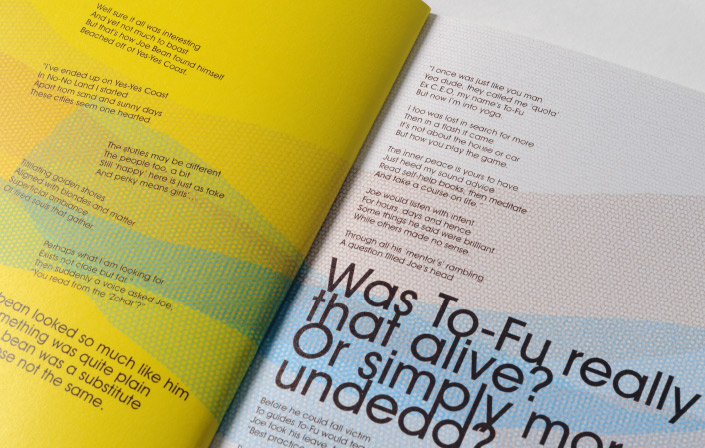 Well sure it all was interesting
And yet not much to boast
But that's how Joe Bean found himself
Beached off of Yes-Yes Coast.
"I've ended up on Yes-Yes Coast
In No-No Land I started
Apart from sand and sunny days
These cities seem one hearted.
The studies may be different
The people too, a bit
Still 'happy' here is just as fake
And perky means girls'..
Titillating golden shores
Aligned with blondes and matter
Superficial ambiance
of tilted souls that gather.
Perhaps what I am looking for
Exists not close but far."
Then suddenly a voice asked Joe,
"You read from the "Zohar"?"
bean looked so much like him
mething was quite plain
bean was a substitute
se not the same.
"I once was just like you man
Yea dude, they called me 'quota'
Ex C.E.O, my name's To-Fu
But now I'm into yoga.
I too was lost in search for more
Then in a flash it came
It's not about the house or car
But how you play the game.
The inner peace is yours to have
Just heed my sound advice
Read self-help books, then meditate
And take a course on life."
Joe would listen with intent
For hours, days and hence
Some things he said were brilliant
While others made no sense.
Through all his 'mentor's' rambling
A question filled Joe's head
Was To-Fu really
that alive?
Or simply more
undedd?
Before he could fall victim
To guides To-Fu would
Joe took his leave,
"Best practice